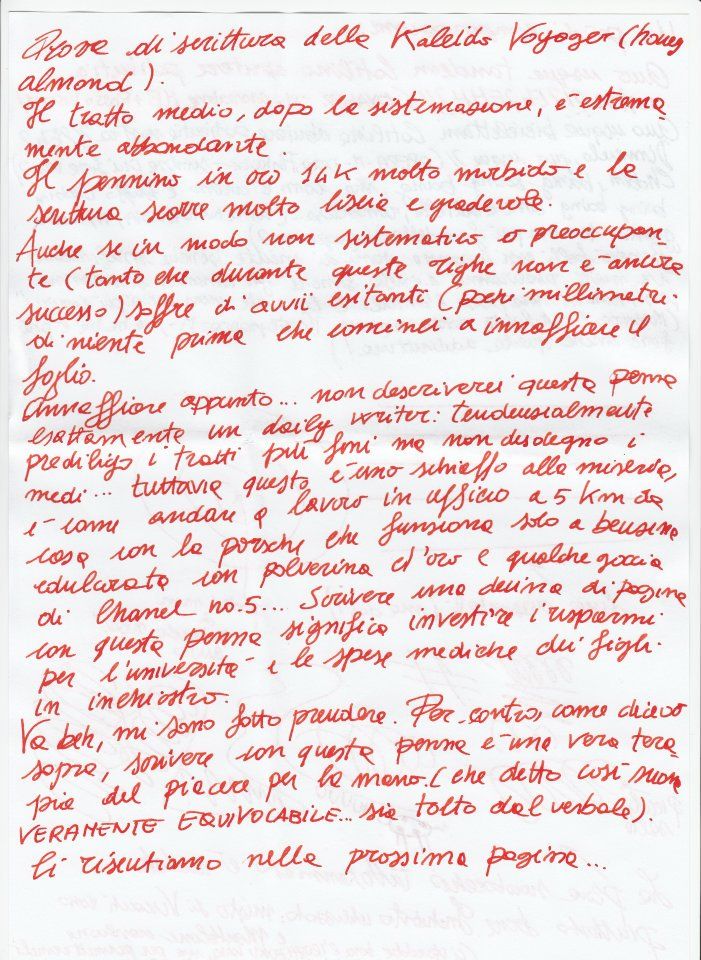 Prova di scrittura della Kaleido Voyager (honey
almond).
Il tratto medio, dopo la sistemazione, è estrema
mente abbondante.
Il pennino in oro 14K molto morbido e la
scrittura scorre molto liscia e gradevole.
Anche se in modo non sistematico o preoccupan-
te (tanto che durante queste righe non è ancora
successo) soffre di avvii esitanti (pochi millimetri
di niente prima che cominci a innaffiare il
foglio.
Annaffiare appunto... non descriverei questa penna
esattamente un daily writer: tendenzialmente
prediligo i tratti più fini ma non disdegno i
medi... tuttavia questo è uno schiaffo alla miseria,
è come andare a lavoro in ufficio a 5 km da
casa con la porsche che funziona solo a benzina
edulcorata con polverina d'oro e qualche goccia
di Chanel no.5... Scrivere una decina di pagine
con questa penna significa investire i risparmi
per l'università e le spese mediche dei figli
in inchiostro.
Va beh, mi sono fatto prendere. Per contro, come dicevo
sopra, scrivere con questa penna è una vera tera
pia del piacere per la mano. (che detto così suona
VERAMENTE EQUIVOCABILE... sia tolto dal verbale).
Ci risentiamo nella prossima pagina...